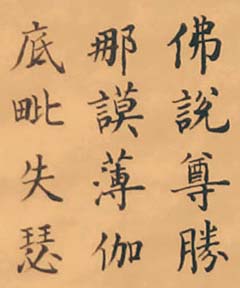 佛說尊勝
那謨薄伽
底毗失瑟